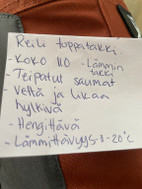 Reili toppatakki.
- Koko 110 - Lämmin takki
- Teipatut saumat
- Vettä ja likaa hylkivä
- Hengittävä
- Lämmittävyys -3 -20°C